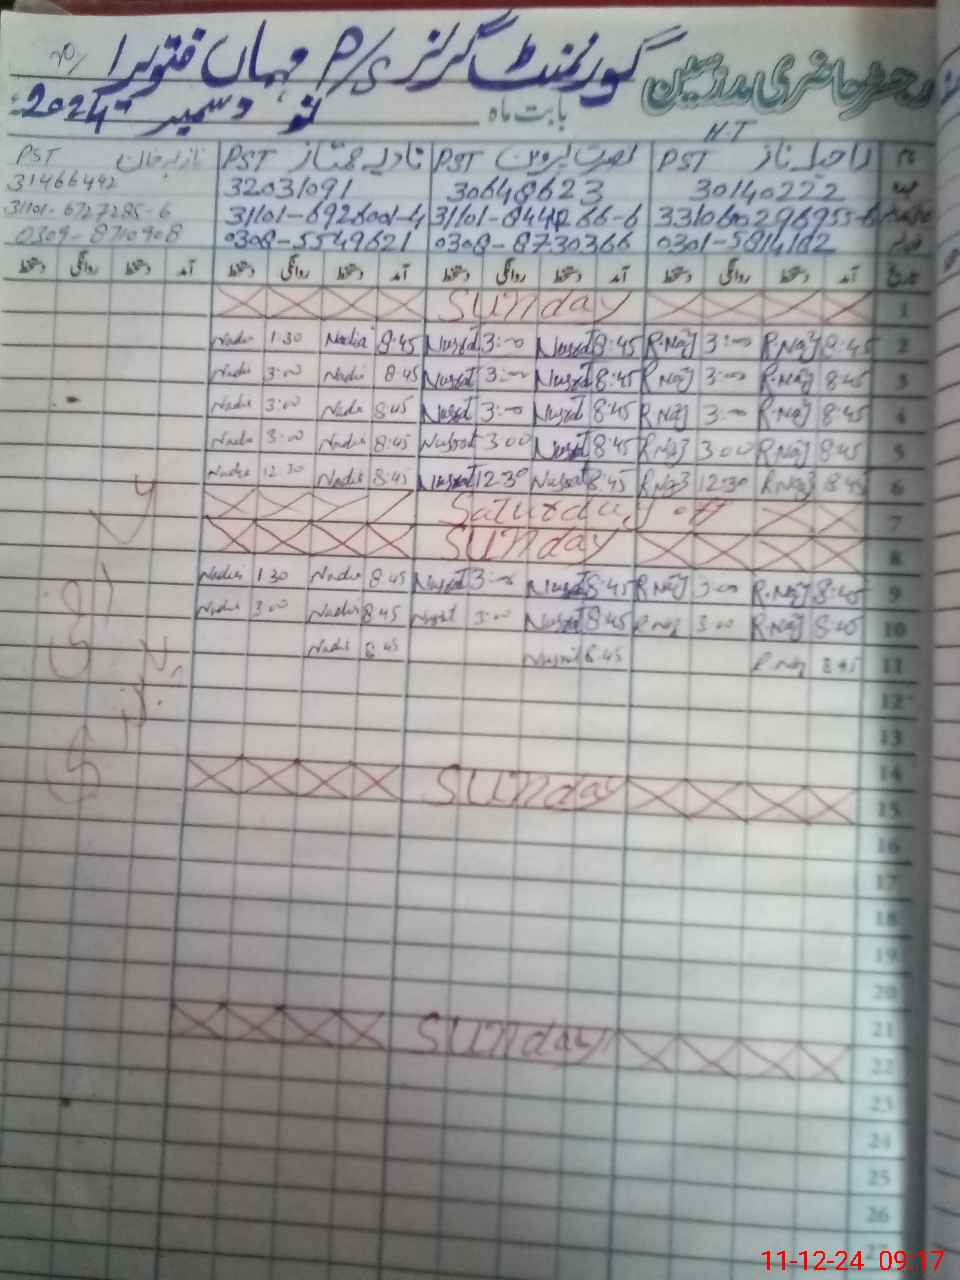 رجسٹر حاضری مدرسین گورنمنٹ گرلز P/S
بابت ماہ دسمبر 2024
H.T
نام ناز PST نصرت پروین PST نادیہ ممتاز PST PST
30140222 30648623 32031091 31466492
31101-6727285-6
0301-5814102 0308-8730366 0308-5549621 0309-8710908
تاریخ آمد دستخط روانگی دستخط آمد دستخط روانگی دستخط آمد دستخط روانگی دستخط آمد دستخط روانگی دستخط
1 Sunday
2 8:45 R.Naz 3:00 R.Naz 8:45 Nusrat 3:00 Nusrat 8:45 Nadia 1:30 Nadia
3 8:45 R.Naz 3:00 R.Naz 8:45 Nusrat 3:00 Nusrat 8:45 Nadia 3:00 Nadia
4 8:45 R.Naz 3:00 R.Naz 8:45 Nusrat 3:00 Nusrat 8:45 Nadia 3:00 Nadia
5 8:45 R.Naz 3:00 R.Naz 8:45 Nusrat 3:00 Nusrat 8:45 Nadia 3:00 Nadia
6 8:45 R.Naz 12:30 R.Naz 8:45 Nusrat 12:30 Nusrat 8:45 Nadia 12:30 Nadia
7 Saturday off
8 Sunday
9 8:45 R.Naz 3:00 R.Naz 8:45 Nusrat 3:00 Nusrat 8:45 Nadia 1:30 Nadia
10 8:45 R.Naz 3:00 R.Naz 8:45 Nusrat 3:00 Nusrat 8:45 Nadia 3:00 Nadia
11 8:45 R.Naz 8:45 Nusrat 8:45 Nadia
12
13
14
15 Sunday
16
17
18
19
20
21
22 Sunday
23
24
25
26
27
11-12-24 09:17